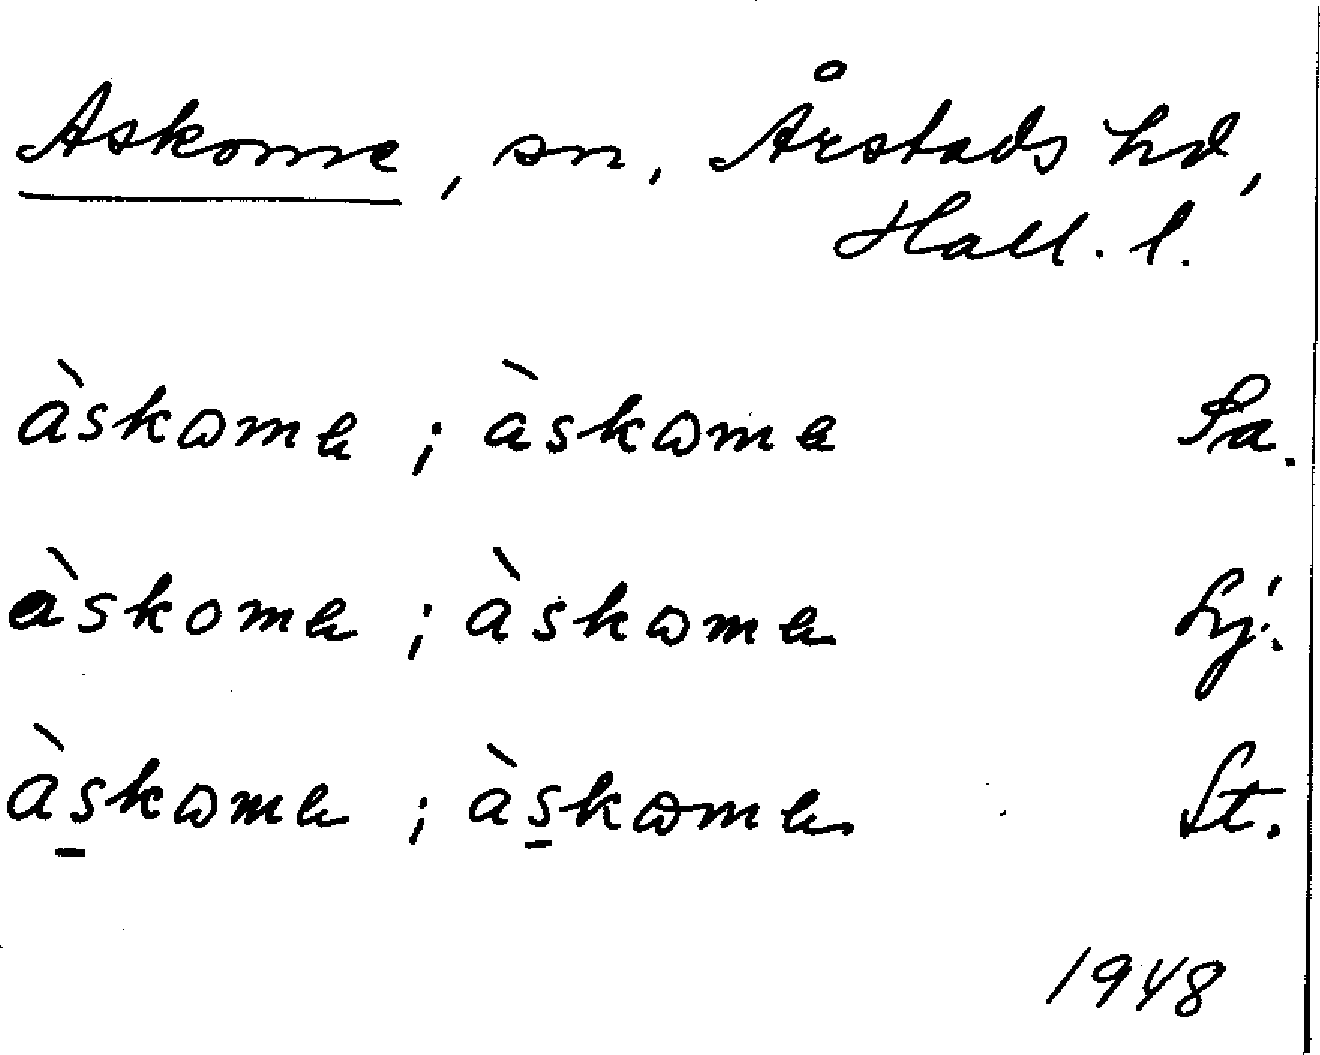 Askome, sn, Årstads hd,
Hall. l.
àskɷmɐ ; àskɷmɐ Sa.
àskomɐ ; àskɷmɐ Lj.
às̱kɷmɐ ; às̱kɷmɐ St.
1948